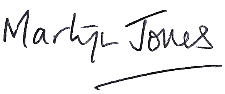 Martijn Jones